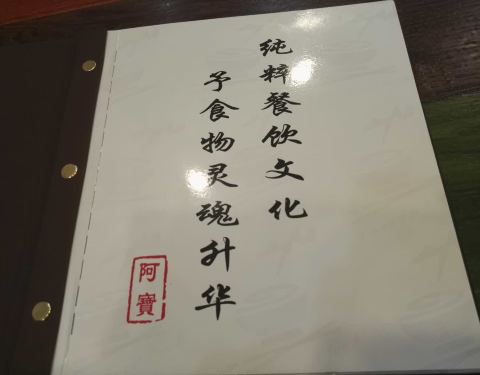 纯粹餐饮文化
予食物灵魂升华
阿寶